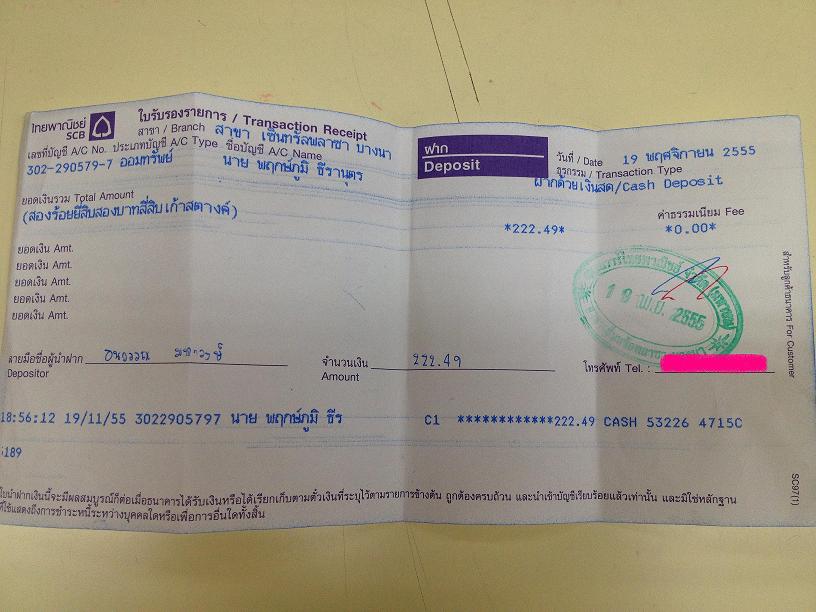 ไทยพาณิชย์
SCB
ใบรับรองรายการ / Transaction Receipt
สาขา / Branch สาขา เซ็นทรัลพลาซา บางนา
เลขที่บัญชี A/C No. ประเภทบัญชี A/C Type ชื่อบัญชี A/C Name
302-290579-7 ออมทรัพย์ นาย พฤกษ์ภูมิ ธีรานุตร
ฝาก
Deposit
วันที่ / Date 19 พฤศจิกายน 2555
ธุรกรรม / Transaction Type
ฝากด้วยเงินสด/Cash Deposit
ยอดเงินรวม Total Amount
(สองร้อยยี่สิบสองบาทสี่สิบเก้าสตางค์)
*222.49*
ค่าธรรมเนียม Fee
*0.00*
ยอดเงิน Amt.
ยอดเงิน Amt.
ยอดเงิน Amt.
ยอดเงิน Amt.
ยอดเงิน Amt.
1 9 พ.ย. 2555
สำหรับลูกค้าธนาคาร For Customer
ลายมือชื่อผู้นำฝาก
Depositor
จำนวนเงิน 222.49
Amount
โทรศัพท์ Tel. :
18:56:12 19/11/55 3022905797 นาย พฤกษ์ภูมิ ธีร C1 ************222.49 CASH 53226 4715C
:189
ใบนำฝากเงินนี้จะมีผลสมบูรณ์ก็ต่อเมื่อธนาคารได้รับเงินหรือได้เรียกเก็บตามตั๋วเงินที่ระบุไว้ตามรายการข้างต้น ถูกต้องครบถ้วน และนำเข้าบัญชีเรียบร้อยแล้วเท่านั้น และมิใช่หลักฐาน
ที่ใช้แสดงถึงการชำระหนี้ระหว่างบุคคลใดหรือเพื่อการอื่นใดทั้งสิ้น
SC97(1)